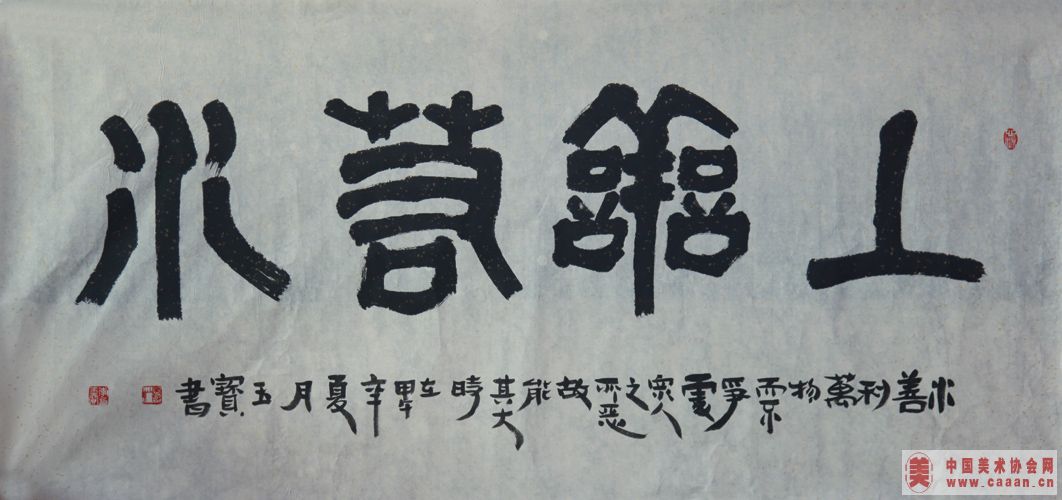 上善若水
水善利萬物而不爭處眾人之惡故能其大時在甲午夏月玉寶書
中国美术协会网
www.caaan.cn